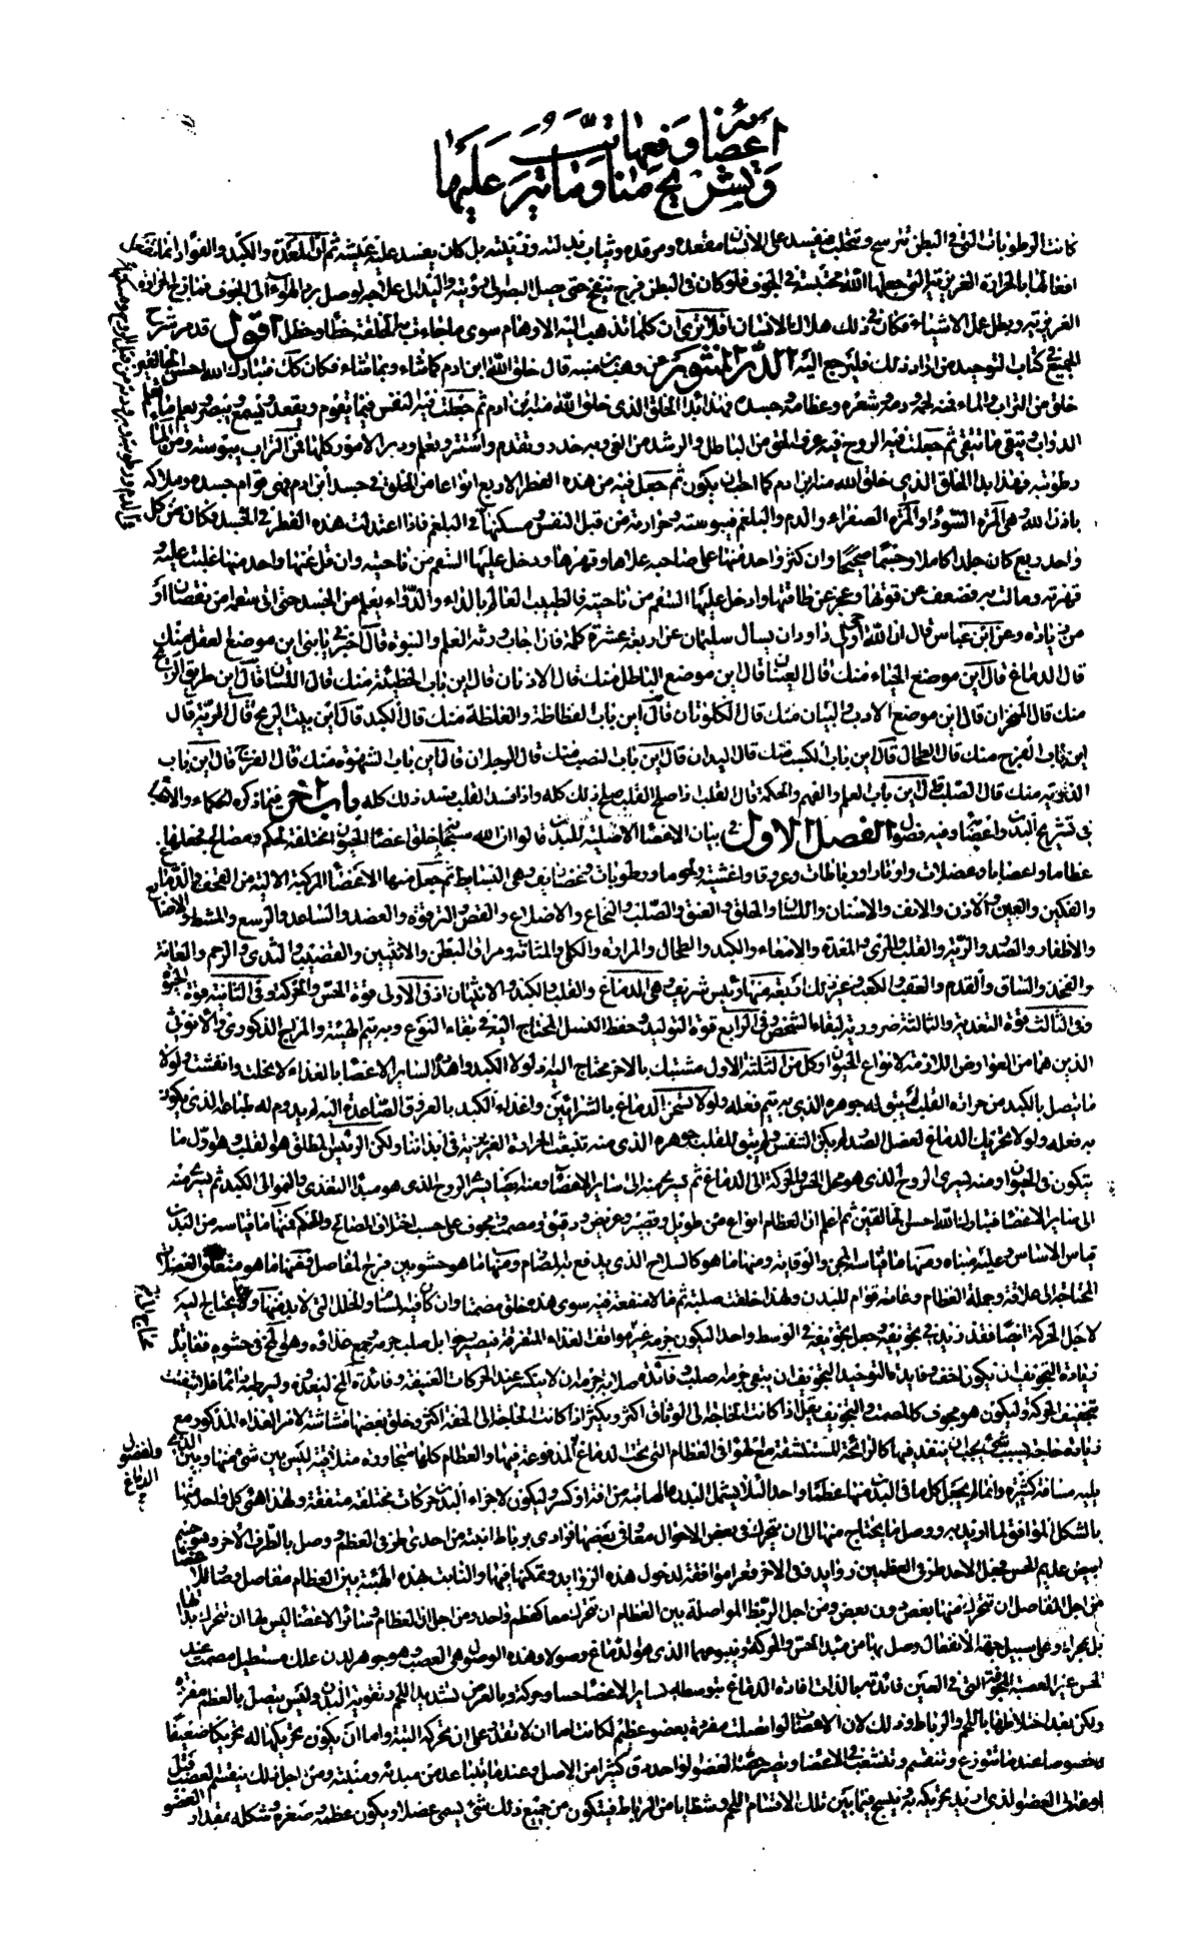 أعضائه ومنافعها وترتب
وتشريح منها وما يترتب عليها
كانت الرطوبات التي في البطن تترشح وتتحلب فيفسد على الانسان مقعده ومرقده وثياب بدلته وزينته بل كان يفسد عليه عيشه ثم ان المعدة والكبد والفؤاد انما تفعل
افعالها بالحرارة الغريزية التي جعلها الله محتبسة في الجوف فلو كان في البطن فرج ينفتح حتى يصل البصر الى رؤيته واليد الى علاجه لوصل برد الهواء الى الجوف فمازج الحرارة
الغريزية وبطل عمل الاحشاء فكان في ذلك هلاك الانسان افلا ترى ان كلما تذهب اليه الاوهام سوى ما جاءت به الخلقة خطأ وخطل اقول قد مر شرح
الجميع في كتاب التوحيد من اراد ذلك فليرجع اليه الدر المنثور عن وهب بن منبه قال خلق الله ابن ادم كما شاء ومما شاء فكان كذلك فتبارك الله احسن الخالقين
خلق من التراب والماء فمنه لحمه ودمه وشعره وعظامه وجسده فهذا بدأ الخلق الذي خلق الله منه ابن ادم ثم جعلت فيه النفس فبها يقوم ويقعد ويسمع ويبصر ويعلم ما تعلم
الدواب ويتقي ما تتقي ثم جعلت فيه الروح فبه عرف الحق من الباطل والرشد من الغي وبه حذر وتقدم واستتر وتعلم ودبر الامور كلها فمن التراب يبوسته ومن الماء
رطوبته فهذا بدأ الخلق الذي خلق الله منه ابن ادم كما احب ان يكون ثم جعل فيه من هذه الفطر الاربع انواعا من الخلق في جسد ابن ادم فهي قوام جسده وملاكه
باذن الله وهي المرة السوداء والمرة الصفراء والدم والبلغم فيبوسته وحرارته من قبل النفس ومسكنها في البلغم فاذا اعتدلت هذه الفطر في الجسد فكان من كل
واحد ربع كان جلدا كاملا وجسما صحيحا وان كثر واحد منها على صاحبه علاها وقهرها ودخل عليها السقم من ناحيته وان قل عنها واحد منها غلبت عليه
قهرته ومالت به وضعف عن قوتها وعجز عن طاقتها وادخل عليها السقم من ناحيته فالطبيب العالم بالداء والدواء يعلم من الجسد حيث اتى سقمه امن نقصان او
من زيادة وعن ابن عباس قال ان الله اوحى الى داود ان يسأل سليمان عن اربعة عشرة كلمة فان اجاب ورثه العلم والنبوة قال اخبرني يا بني اين موضع العقل منك
قال الدماغ قال اين موضع الحياء منك قال العينان قال اين موضع الباطل منك قال الاذنان قال اين باب الخطيئة منك قال اللسان قال اين طريق الريح
منك قال المنخران قال اين موضع الادب والبيان منك قال الكلوتان قال اين باب الفظاظة والغلظة منك قال الكبد قال اين بيت الريح قال الرية قال
اين باب الفرح منك قال الطحال قال اين باب الكسب منك قال اليدان قال اين باب النصب منك قال الرجلان قال اين باب الشهوة منك قال الفرج قال اين باب
الذرية منك قال الصلب قال اين باب العلم والفهم والحكمة قال القلب اذا صلح القلب صلح ذلك كله واذا فسد القلب فسد ذلك كله باب اخر فيما ذكره الحكماء والاطباء
في تشريح البدن واعضائه وفيه فصول الفصل الاول في بيان الاعضاء الاصلية للبدن قالوا ان الله سبحانه خلق اعضاء الحيوان مختلفة لحكم ومصالح فجعلها
عظاما واعصابا وعضلات واوتارا ورباطات وعروقا واغشية ولحوما ورطوبات وغضاريف وهي البسائط ثم جعل منها الاعضاء المركبة الالية من القحف والدماغ
والفكين والعين والاذن والانف والاسنان واللسان والحلق والعنق والصلب والنخاع والاضلاع والقص والترقوة والعضد والساعد والرسغ والمشط والاصابع
والاظفار والصدر والرية والقلب والمري والمعدة والامعاء والكبد والطحال والمرارة والكلى والمثانة ومراق البطن والانثيين والقضيب والثدي والرحم والعانة
والفخذ والساق والقدم والعقب والكعب وغير ذلك اربعة منها رئيس شريف هي الدماغ والقلب والكبد والانثيان اذ في الاولى قوة الحس والحركة وفي الثانية قوة الحيوة
وفي الثالث قوة التغذية والثلاثة ضرورية لبقاء الشخص وفي الرابع قوة التوليد وحفظ النسل المحتاج اليه في بقاء النوع وبه يتم الهيئة والمزاج الذكوري والانوثي
الذين هما من العوارض اللازمة لانواع الحيوان وكل من الثلثة الاول مشتبك بالاخر محتاج اليه لولا الكبد وامداده لسائر الاعضاء بالغذاء لانحلت وانفشت ولولا
ما يتصل بالكبد من حرارة القلب لم يبق له جوهره الذي به يتم فعله ولولا تسخن الدماغ بالشرائين واغذاء الكبد بالعروق الصاعدة اليه لم يدم له طباعه الذي يكون
به فعله ولولا تحريك الدماغ لعضل الصدر لم يكن التنفس ولم يبق للقلب جوهره الذي منه تنبعث الحرارة الغريزية في ابداننا ولكن الرئيس المطلق هو القلب وهو اول ما
يتكون في الحيوان ومنه يسري الروح الذي هو محل الحس والحركة الى الدماغ ثم يسري منه الى سائر الاعضاء ومنه ايضا يسري الروح الذي هو مبدأ التغذي والنمو الى الكبد ثم يسري منه
الى سائر الاعضاء فتبارك الله احسن الخالقين ثم اعلم ان العظام انواع من طويل وقصير وعريض ودقيق ومصمت ومجوف على حسب اختلاف المصالح والحكم فمنها ما قياسه من البدن
قياس الاساس وعليه مبناه ومنها ما قياسه المجن والوقاية ومنها ما هو كالسلاح الذي يدفع به المصادم ومنها ما هو حشو بين فرج المفاصل ومنها ما هو متعلق العضلات
المحتاجة الى علاقة وجملة العظام دعامة وقوام للبدن ولهذا خلقت صلبة ثم ما لا منفعة فيه سوى هذه خلق مصمتا وان كان فيه المسام والخلل التي لا بد منها وما يحتاج اليه
لاجل الحركة ايضا فقد زيد في تجويفه وجعل تجويفه في الوسط واحدا ليكون جرمه غير مواقف الغذاء المتفرقة فيصير رخوا بل صلب جرمه وجمع غذاؤه وهو المخ في حشوه ففائدة
زيادة التجويف ان يكون اخف وفائدة التوحيد التجويف ان يبقى جرمه اصلب وفائدة صلابة جرمه ان لا ينكسر عند الحركات العنيفة وفائدة المخ ليغذوه وليرطبه دائما فلا يتفتت
بتجفيف الحركة وليكون هو مجوف كالمصمت والتجويف يقل اذا كانت الحاجة الى الوثاق اكثر ويكثر اذا كانت الحاجة الى الخفة اكثر وخلق بعضها مشاشة لامر الغذاء المذكور مع
زيادة حاجة بسبب شيء يجب ان ينفذ فيها كالرائحة المستنشقة مع الهواء في العظام التي تحت الدماغ المدفوعة فيها والعظام كلها متجاورة متلاقية ليس بين شيء منها وبين الذي
يليه مسافة كثيرة وانما لم يجعل كل ما في البدن منها عظما واحدا لئلا يشمل البدن ما اصابه من افة او كسر وليكون لاجزاء البدن حركات مختلفة متفقة ولهذا هيئ كل واحد منها
بالشكل الموافق لما اريد به ووصل ما يحتاج منها الى ان يتحرك في بعض الاحوال معا وفي بعضها فرادى برباط انبته من احدى طرفي العظم ووصل بالطرف الاخر وهو جسم
ابيض عديم الحس فجعل لاحد طرفي العظمين زوايد وفي الاخر نقرا موافقة لدخول هذه الزوايد وتمكنها فيها والتأمت هذه الهيئة بين العظام مفاصل وصار للاعضاء
من اجل المفاصل ان تتحرك منها بعض دون بعض ومن اجل الربط المواصلة بين العظام ان تتحرك معا كعظم واحد ومن اجل ان العظام وسائر الاعضاء ليس لها ان تتحرك بذاتها
بل بمحرك وعلى سبيل جهة الانفعال وصل بها من مبدأ الحس والحركة وينبوعهما الذي هو الدماغ وصولا وهذه الوصول هي العصب وهو جوهر لدن علك مستطيل مصمت عند
الحس غير العصبة المجوفة التي في العين فائدته بالذات افادة الدماغ بتوسطه لسائر الاعضاء حسا وحركة وبالعرض تشديد اللحم وتقوية البدن وليس يتصل بالعظم مفردة
ولكن بعد اختلاطها باللحم والرباط وذلك لان الاعصاب لو اتصلت مفردة بعضو عظيم لكانت اما ان لا تقدر على ان تحركه البتة واما ان يكون تحريكها له تحريكا ضعيفا
وخصوصا عندما تتوزع وتنقسم وتتشعب في الاعضاء وتصير حصة العضو الواحد ادق كثيرا من الاصل وعندما يتباعد من مبدئه ومنبته ومن اجل ذلك ينقسم العصب قبل
بلوغه الى العضو الذي اريد تحريكه به وينسج فيما بين تلك الاقسام اللحم وشظايا من الرباط فيتكون من جميع ذلك شيء يسمى عضلا ويكون عظمه وصغره وشكله بمقدار العضو
ولفضول
الدماغ